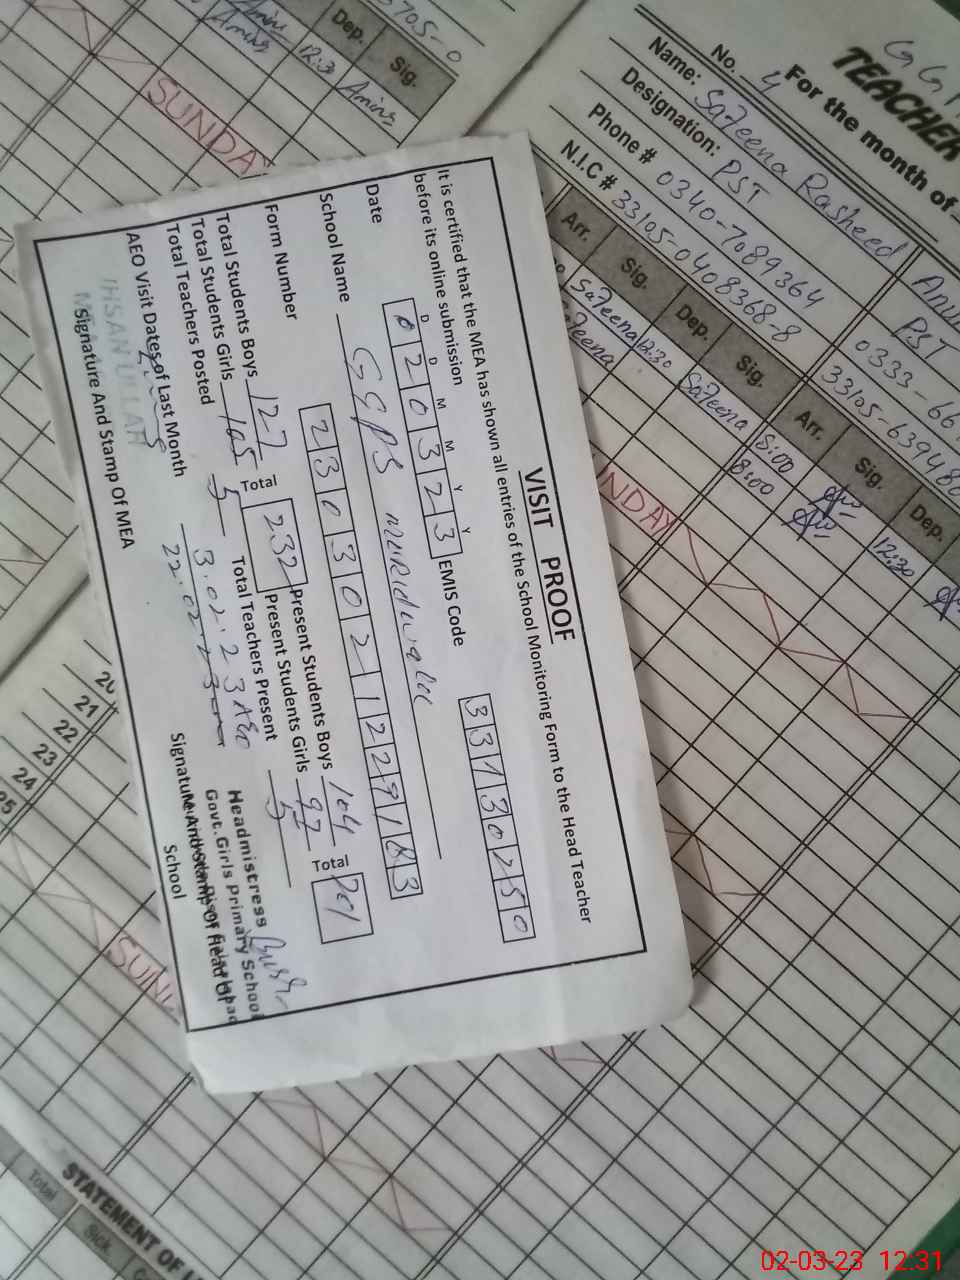 VISIT PROOF
It is certified that the MEA has shown all entries of the School Monitoring Form to the Head Teacher
before its online submission
D D M M Y Y
Date 0 2 0 3 2 3 EMIS Code 3 3 1 3 0 2 5 0
School Name GGPS
Form Number 2 3 0 3 0 2 1 2 2 9 1 8 3
Total Students Boys 127 Total 232 Present Students Boys 104 Total
Total Students Girls 105 Present Students Girls 97
Total Teachers Posted 5 Total Teachers Present 5
AEO Visit Dates of Last Month 3.02.23 AEO
22.02.23
IHSAN ULLAH
Signature And Stamp Of MEA
Headmistress
Govt. Girls Primary School
Signature And Stamp Of Head Of
School
TEACHER
For the month of
No. 4
Name: Safeena Rasheed
Designation: PST
Phone # 0340-7089364
N.I.C # 33105-0408368-8
Arr. Sig. Dep. Sig. Arr. Sig. Dep.
Safeena 12:30 Safeena 8:00 12:30
Safeena 8:00
PST
0333-66
33105-639480
SUNDAY
705-0
Dep. Sig.
Amins 12:3 Amins
Amins
SUNDAY
20
21
22
23
24
25
SUN
STATEMENT OF L
Total Sick
02-03-23 12:31